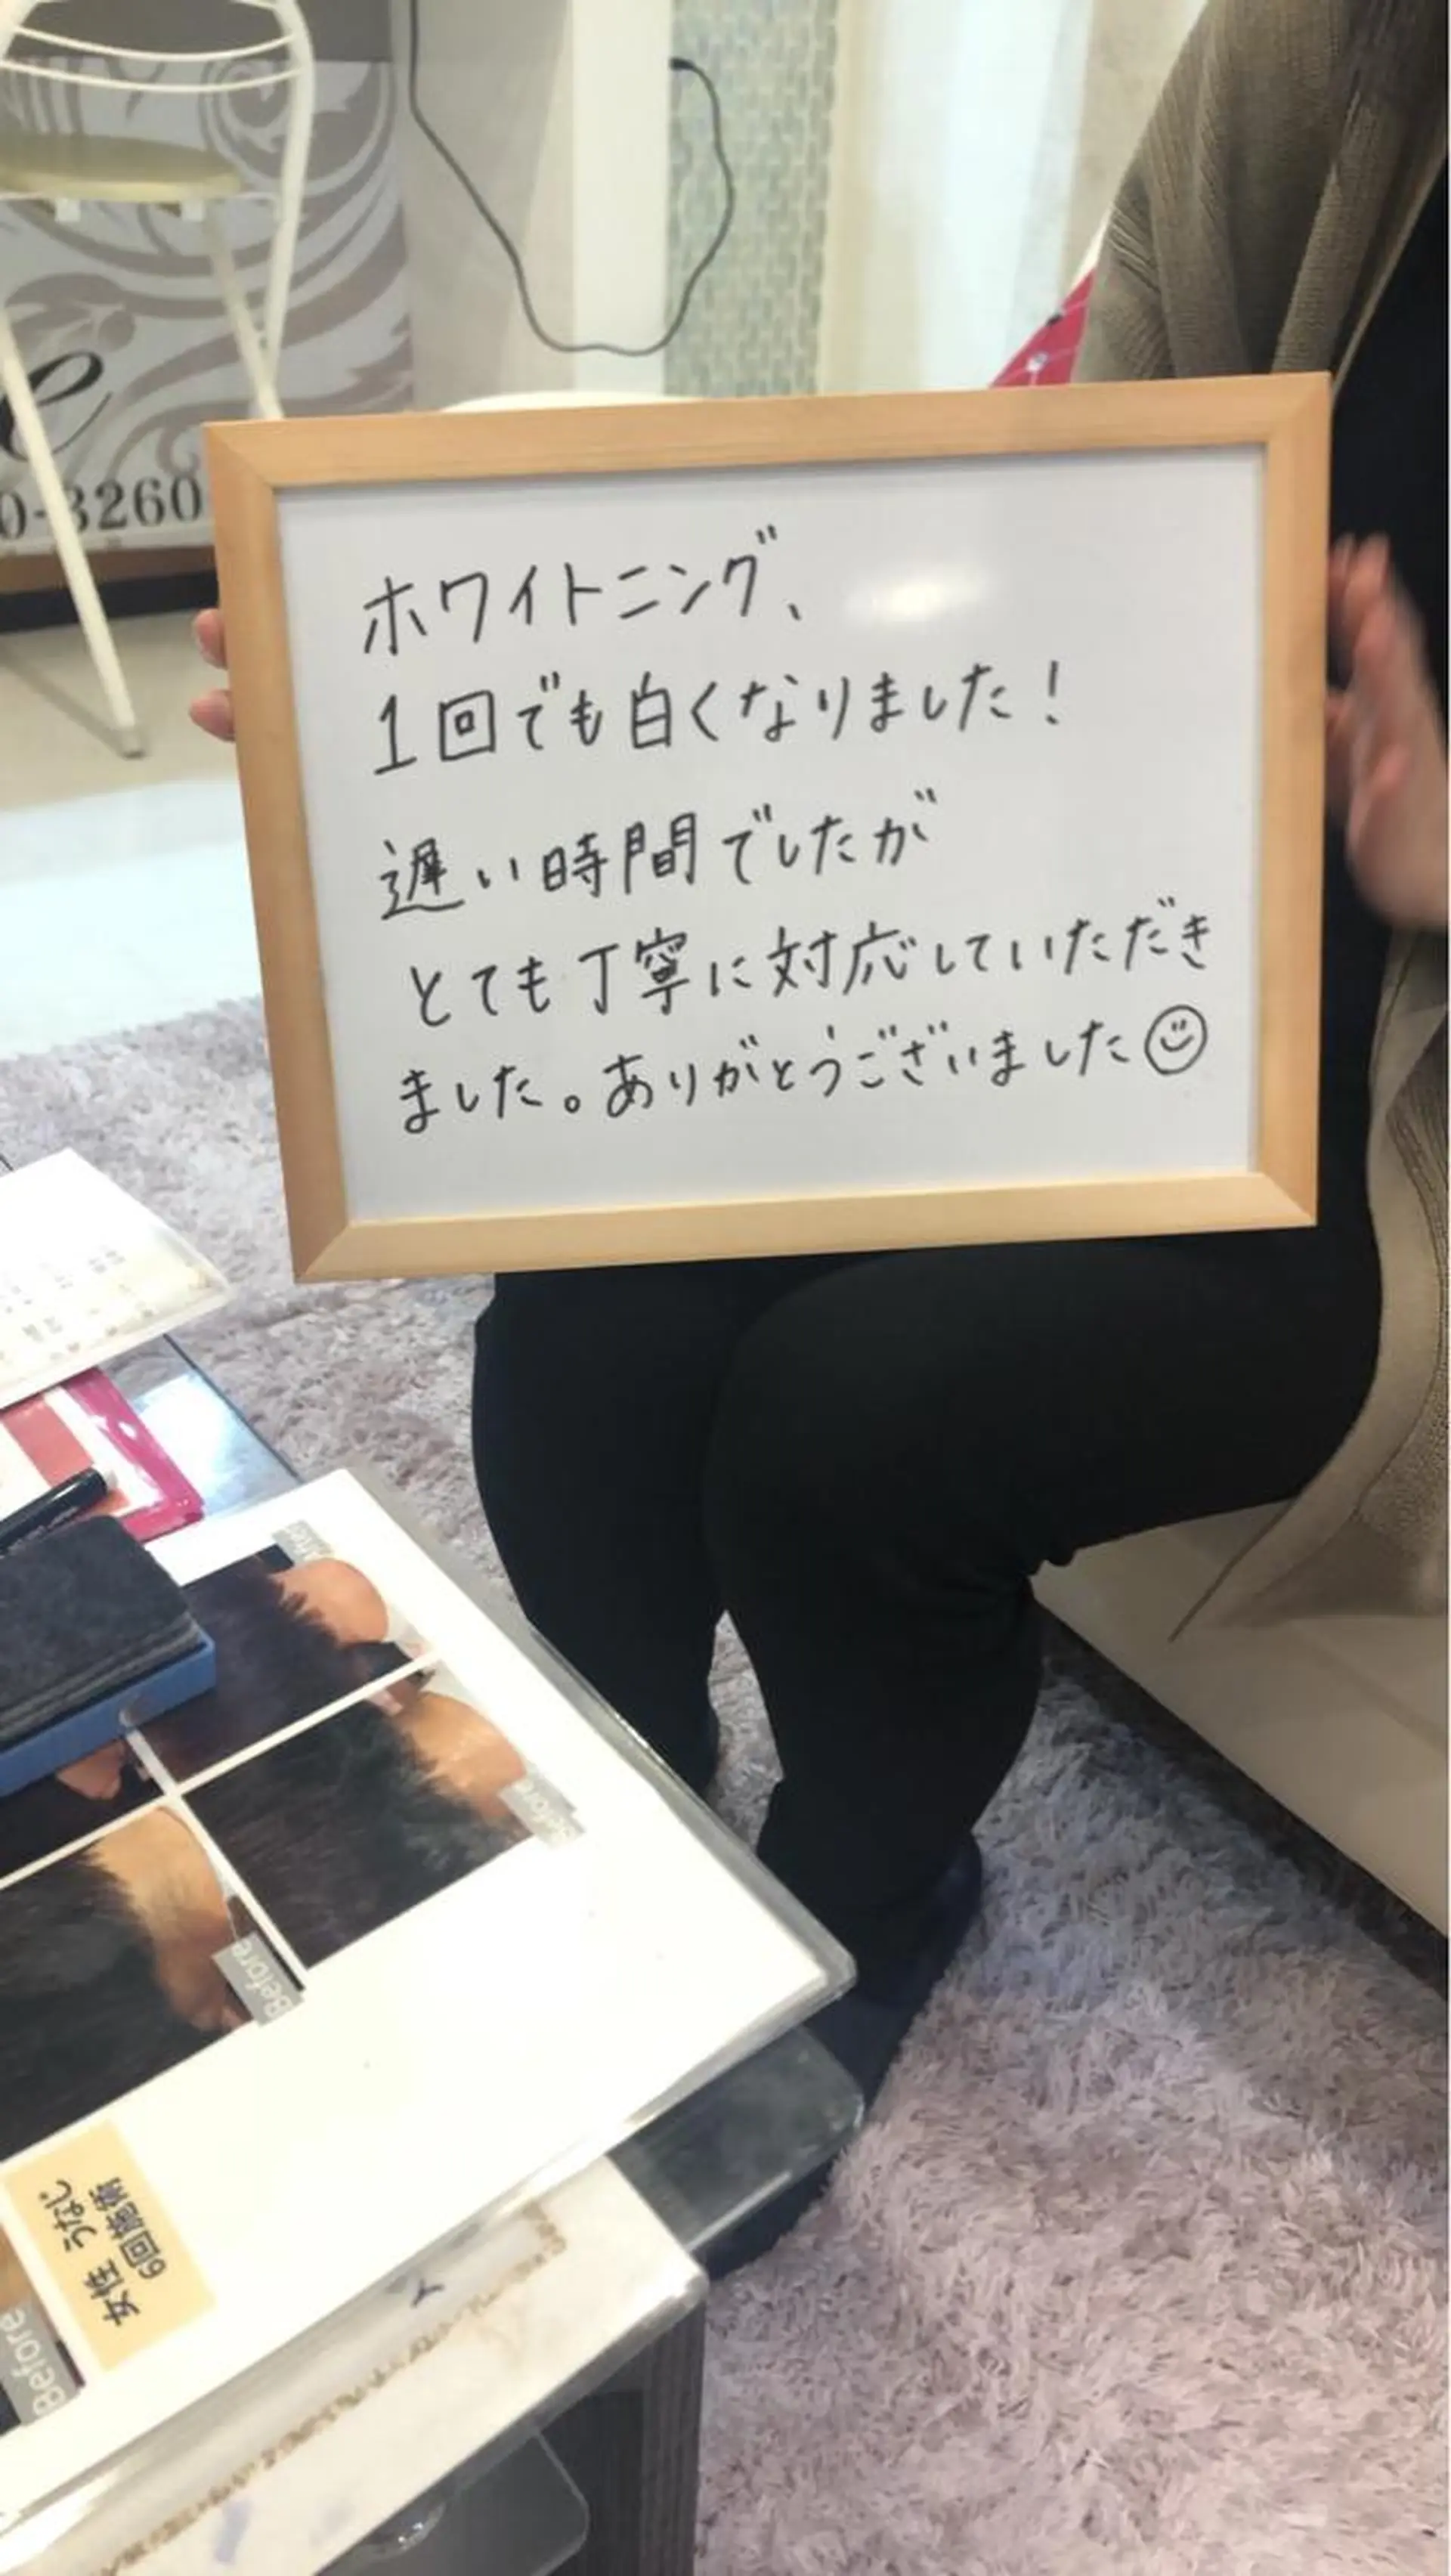 e
0-3260
ホワイトニング、
1回でも白くなりました!
遅い時間でしたが
とても丁寧に対応していただき
ました。ありがとうございました☺
After
Before
Before
女性 うなじ
6回施術
Before